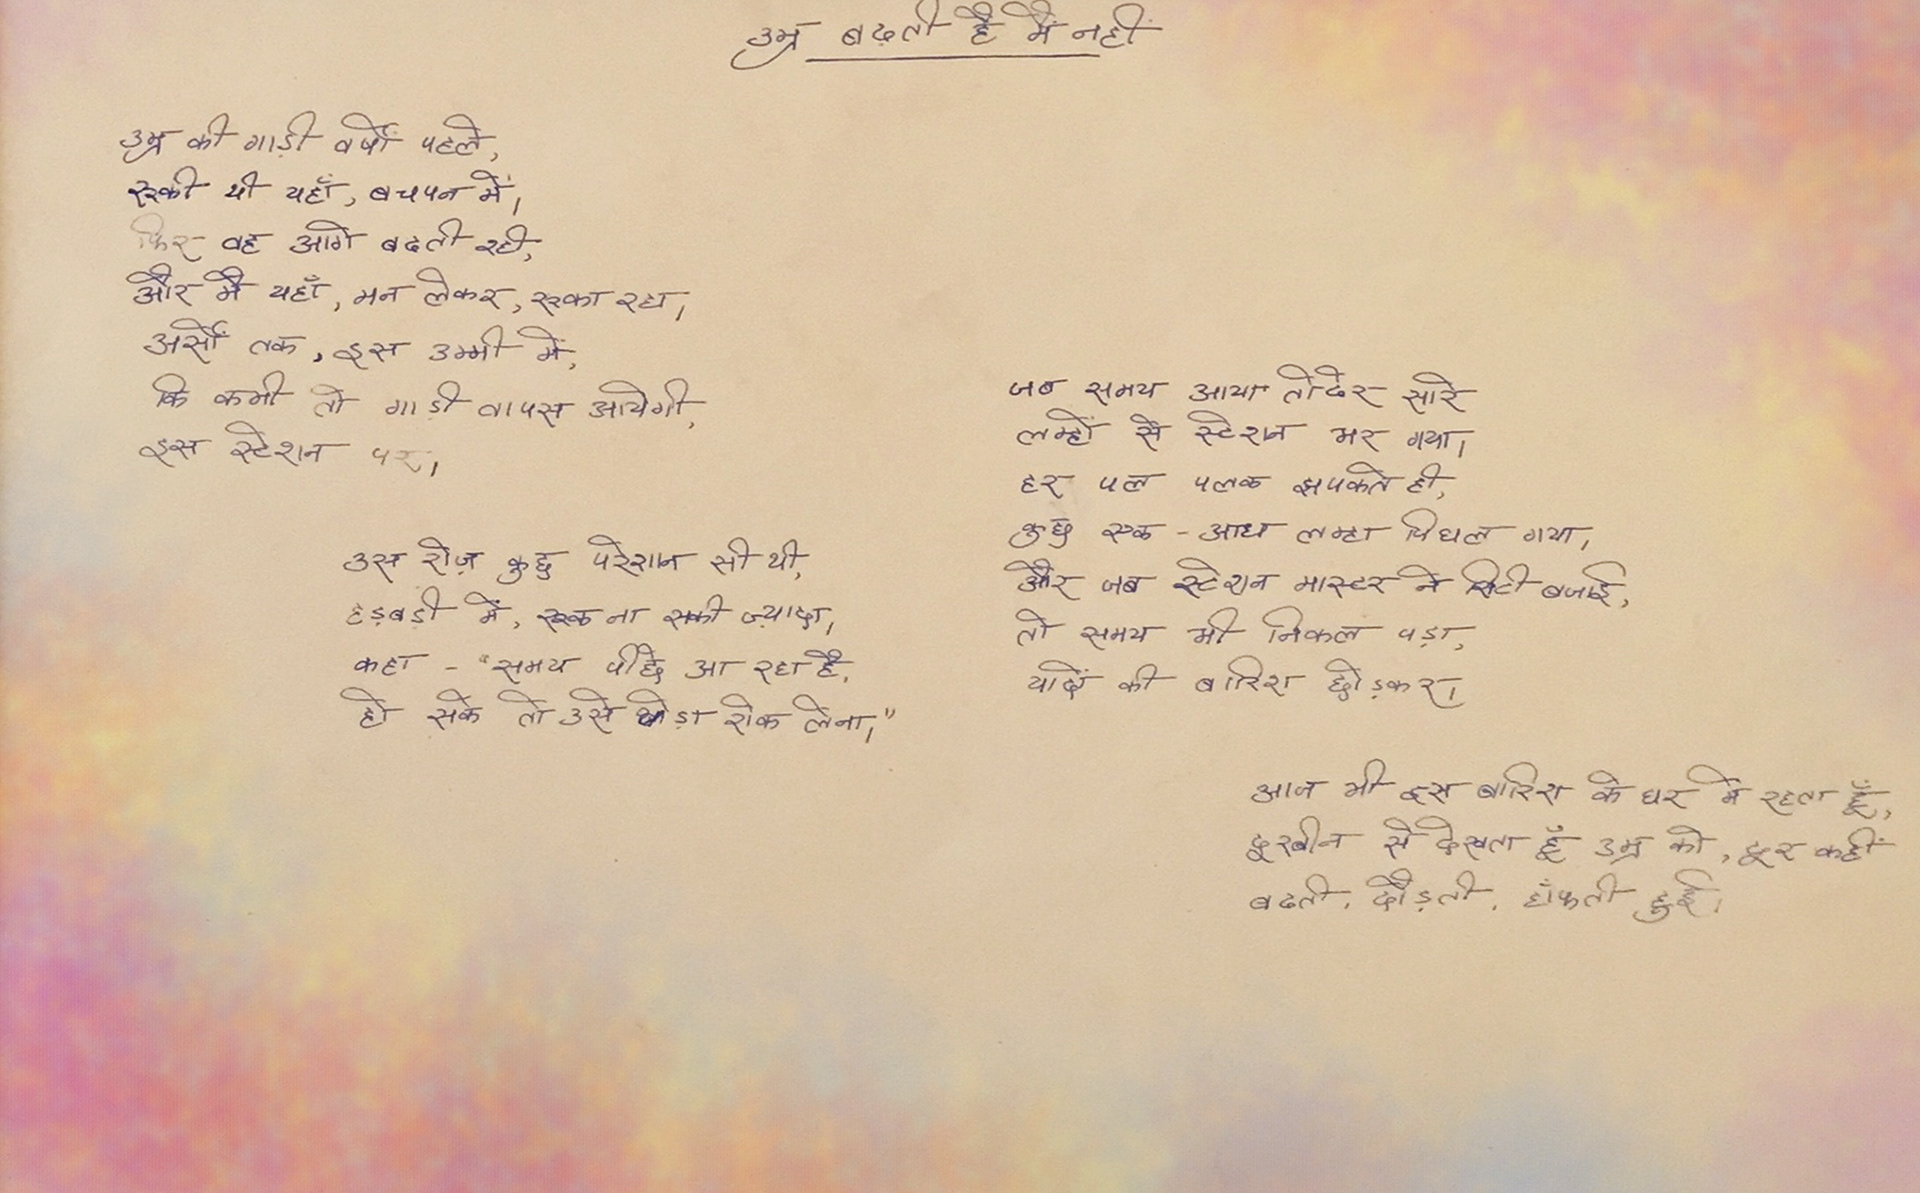 उम्र बढ़ती है मैं नहीं
उम्र की गाड़ी वर्षों पहले,
रुकी थी यहाँ, बचपन में।
फिर वह आगे बढती रही,
और मैं यहाँ, मन लेकर, रुका रहा,
अर्सों तक, इस उम्मी में,
कि कभी तो गाड़ी वापस आयेगी,
इस स्टेशन पर।
उस रोज़ कुछ परेशान सी थी,
हड़बड़ी में, रुक ना सकी ज़्यादा,
कहा - "समय पीछे आ रहा है,
हो सके तो उसे थोड़ा रोक लेना।"
जब समय आया तो ढेर सारे
लम्हों से स्टेशन भर गया।
हर पल पलक झपकते ही,
कुछ एक - आध लम्हा पिघल गया,
और जब स्टेशन मास्टर ने सिटी बजाई,
तो समय भी निकल पड़ा,
यादों की बारिश छोड़कर।
आज भी इस बारिश के घर में रहता हूँ,
दूरबीन से देखता हूँ उम्र को, दूर कहीं
बढती, दौड़ती, हाँफती हुई।